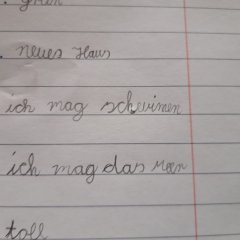 grün
. neues Haus
ich mag schwimen
ich mag das
toll